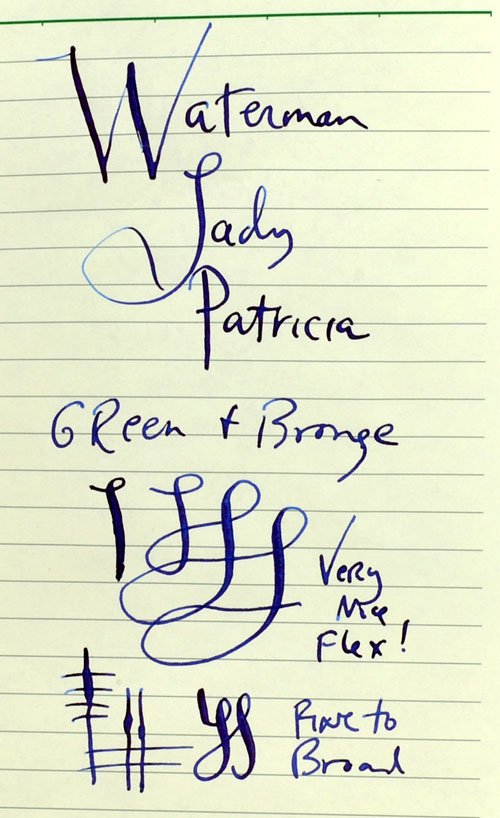 Waterman
Lady
Patricia
GReen + Bronze
Very
Nice
Flex!
Fine to
Broad